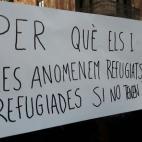 PER QUÈ ELS I
LES ANOMENEM REFUGIATS
REFUGIADES SI NO TENEN